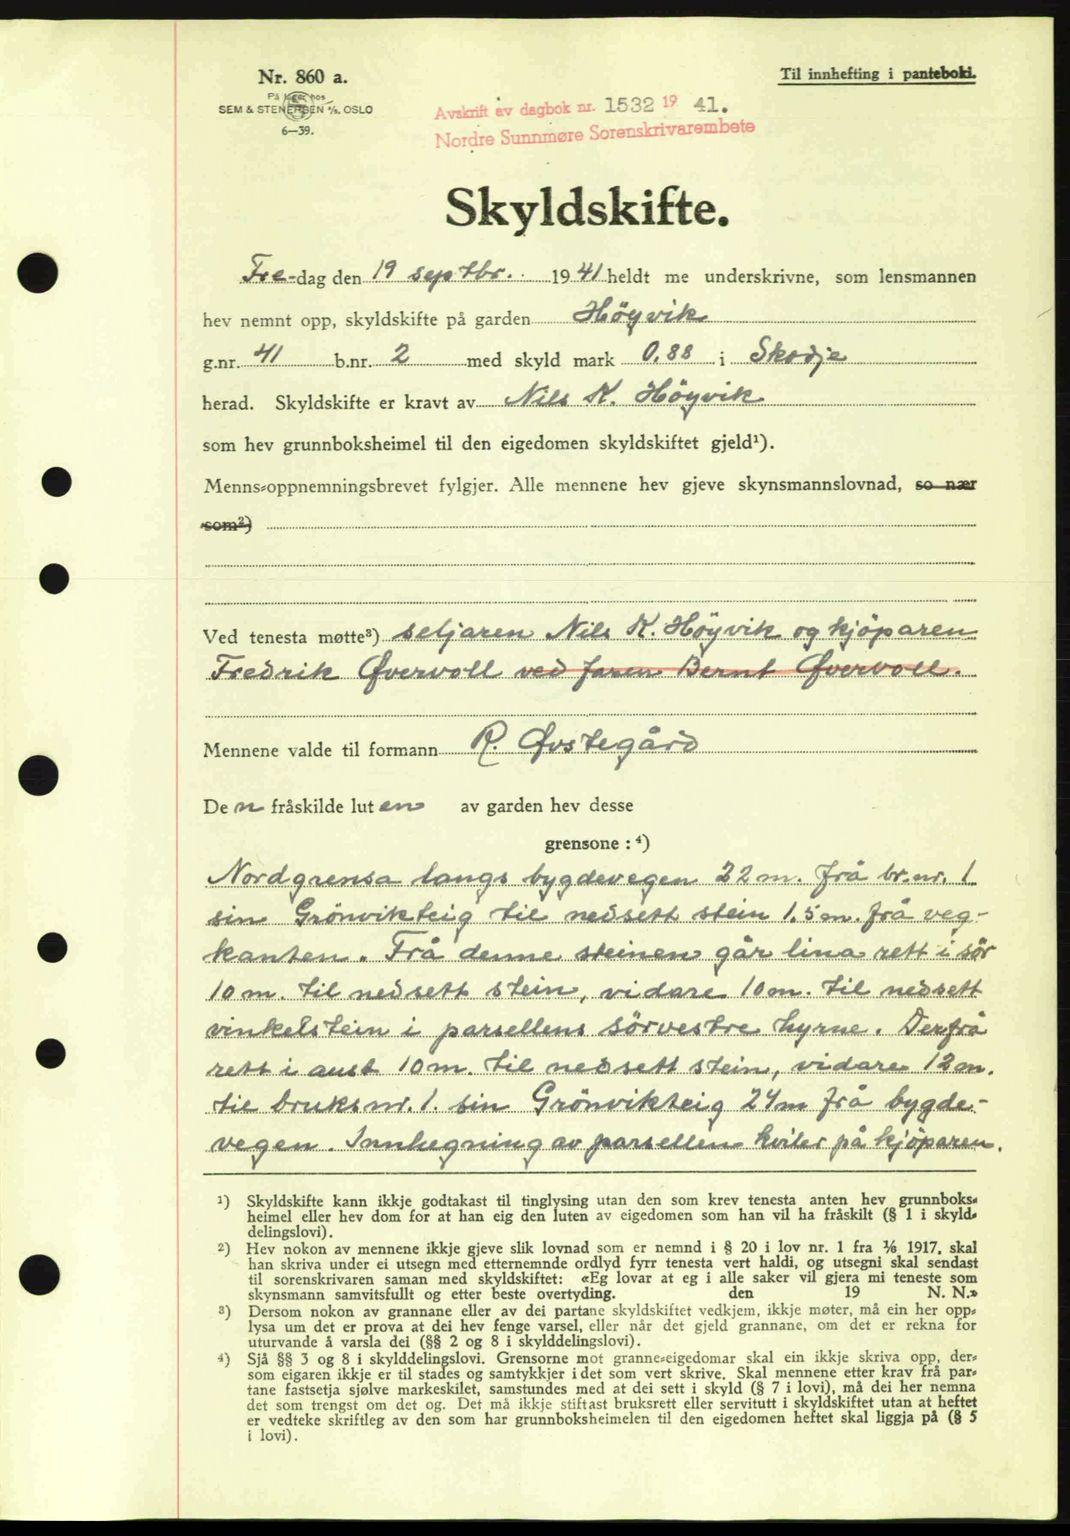 Nr. 860 a.
På lager hos
SEM & STENERSEN A/S. OSLO
6—39.
Til innhefting i panteboki.
Avskrift av dagbok nr. 1532 19 41.
Nordre Sunnmøre Sorenskrivarembete
Skyldskifte.
Fre-dag den 19 septbr. 19 41 heldt me underskrivne, som lensmannen
hev nemnt opp, skyldskifte på garden Höyvik
g.nr. 41 b.nr. 2 med skyld mark 0,88 i Skodje
herad. Skyldskifte er kravt av Nils K. Höyvik
som hev grunnboksheimel til den eigedomen skyldskiftet gjeld¹).
Menns-oppnemningsbrevet fylgjer. Alle mennene hev gjeve skynsmannslovnad, so nær
som²)
Ved tenesta møtte³) seljaren Nils K. Höyvik og kjöparen
Fredrik Øvervoll ved faren Bernt Øvervoll.
Mennene valde til formann R. Øvstegård
De n fråskilde lut en av garden hev desse
grensone : ⁴)
Nordgrensa langs bygdevegen 22 m. frå br.nr. 1
sin Grönvikteig til nedsett stein 1.5 m. frå veg-
kanten. Frå denne steinen går lina rett i sör
10 m. til nedsett stein, vidare 10 m. til nedsett
vinkelstein i parsellens sörvestre hyrne. Derfrå
rett i aust 10 m. til nedsett stein, vidare 12 m.
til bruksnr. 1. sin Grönvikteig 24 m frå bygde-
vegen. Innhegning av parsellen kviler på kjöparen.
¹) Skyldskifte kann ikkje godtakast til tinglysing utan den som krev tenesta anten hev grunnboks-
heimel eller hev dom for at han eig den luten av eigedomen som han vil ha fråskilt (§ 1 i skyld-
delingslovi).
²) Hev nokon av mennene ikkje gjeve slik lovnad som er nemnd i § 20 i lov nr. 1 fra ⅙ 1917, skal
han skriva under ei utsegn med etternemnde ordlyd fyrr tenesta vert haldi, og utsegni skal sendast
til sorenskrivaren saman med skyldskiftet: «Eg lovar at eg i alle saker vil gjera mi teneste som
skynsmann samvitsfullt og etter beste overtyding. den 19 N. N.»
³) Dersom nokon av grannane eller av dei partane skyldskiftet vedkjem, ikkje møter, må ein her opp-
lysa um det er prova at dei hev fenge varsel, eller når det gjeld grannane, om det er rekna for
uturvande å varsla dei (§§ 2 og 8 i skylddelingslovi).
⁴) Sjå §§ 3 og 8 i skylddelingslovi. Grensorne mot granne-eigedomar skal ein ikkje skriva opp, der-
som eigaren ikkje er til stades og samtykkjer i det som vert skrive. Skal mennene etter krav frå par-
tane fastsetja sjølve markeskilet, samstundes med at dei sett i skyld (§ 7 i lovi), må dei her nemna
det som trengst om det og. Det må ikkje stiftast bruksrett eller servitutt i skyldskiftet utan at heftet
er vedteke skriftleg av den som har grunnboksheimelen til den eigedomen heftet skal liggja på (§ 5
i lovi).